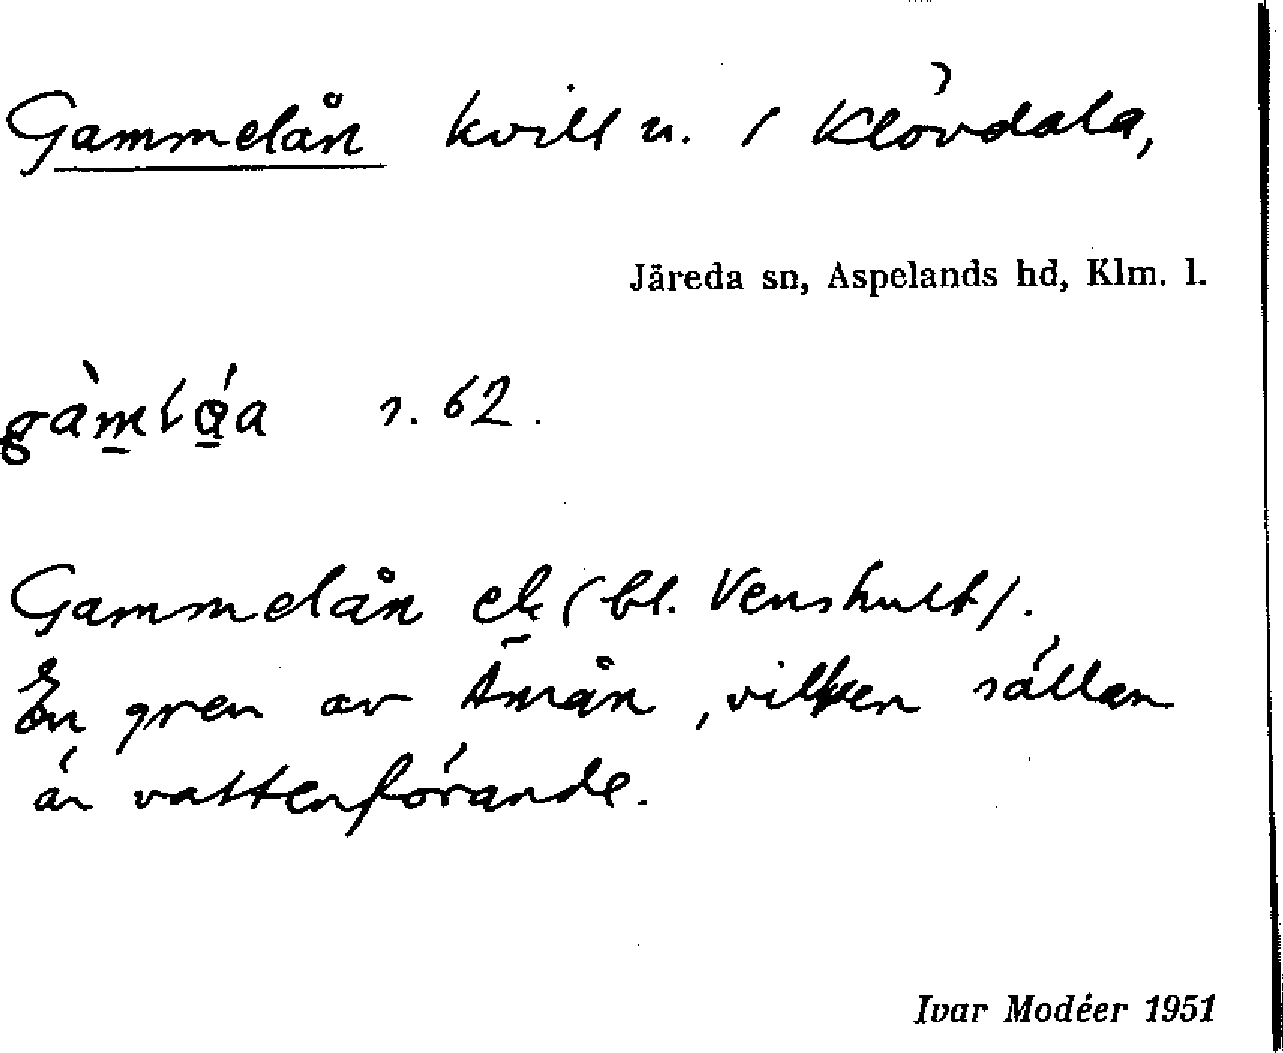 Gammelån kvill n. / Klövdala,
Järeda sn, Aspelands hd, Klm. l.
s. 62.
Gammelån ek (bl. Venshult).
En gren av Emån, vilken sällan
är vattenförande.
Ivar Modéer 1951